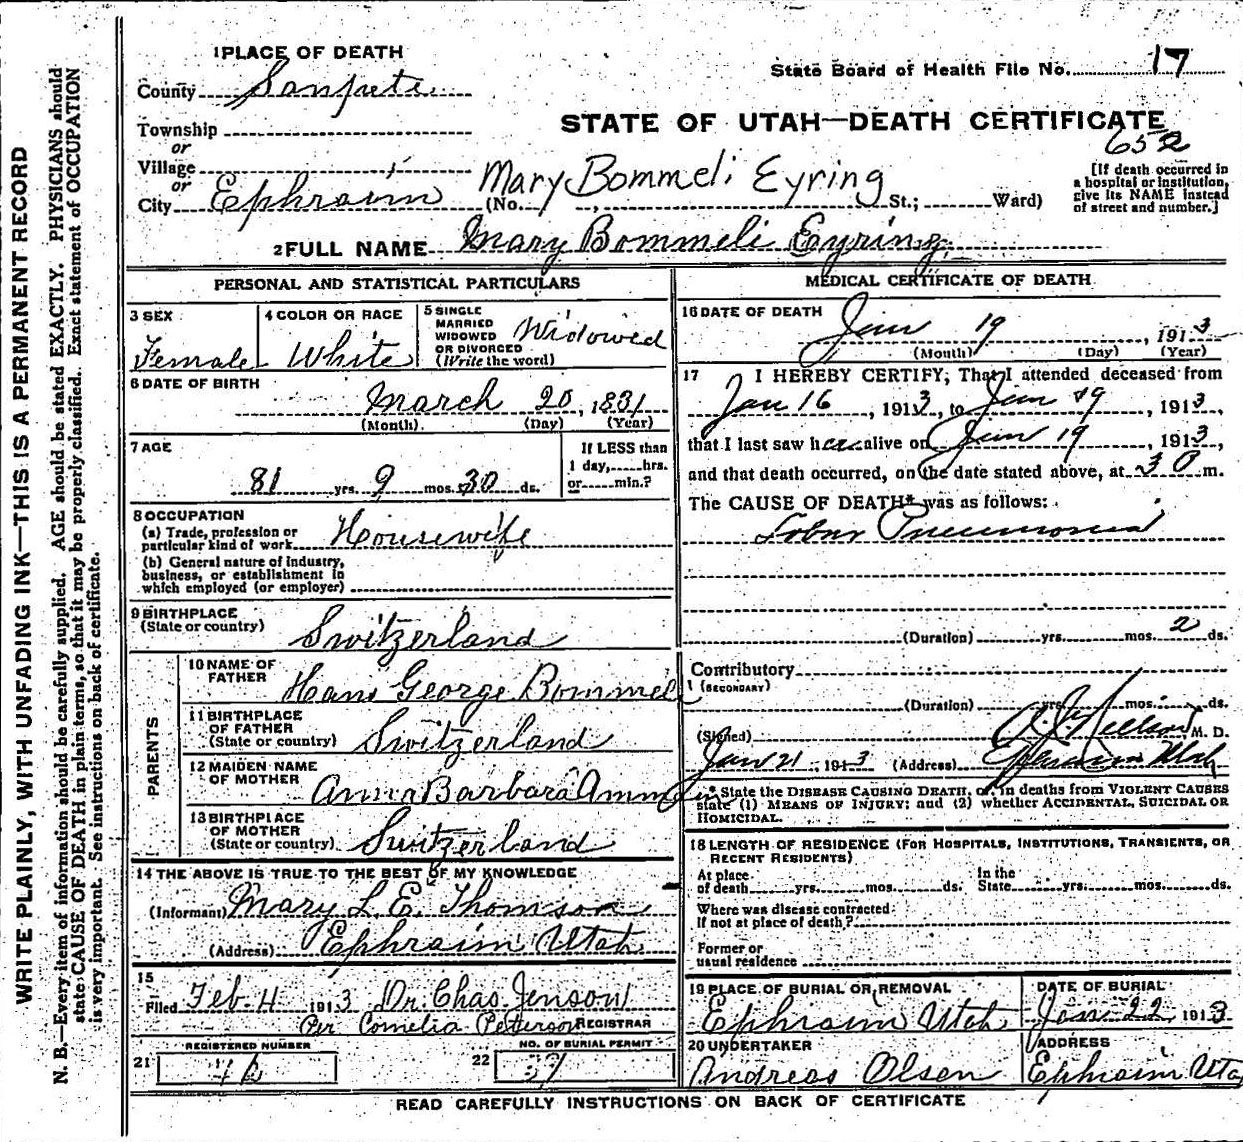 WRITE PLAINLY, WITH UNFADING INK—THIS IS A PERMANENT RECORD
N. B.—Every item of information should be carefully supplied. AGE should be stated EXACTLY. PHYSICIANS should
state CAUSE OF DEATH in plain terms, so that it may be properly classified. Exact statement of OCCUPATION
is very important. See instructions on back of certificate.
1 PLACE OF DEATH
State Board of Health File No. 17
County Sanpete
STATE OF UTAH—DEATH CERTIFICATE
Township
or
652
Village
or
Mary Bommeli Eyring
[If death occurred in
a hospital or institution,
give its NAME instead
of street and number.]
City Ephraim (No. , St.; Ward)
2 FULL NAME Mary Bommeli Eyring
PERSONAL AND STATISTICAL PARTICULARS
3 SEX
Female
4 COLOR OR RACE
White
5 SINGLE
MARRIED
WIDOWED
OR DIVORCED
(Write the word)
Widowed
6 DATE OF BIRTH
March 20, 1831
(Month) (Day) (Year)
7 AGE
81 yrs. 9 mos. 30 ds.
If LESS than
1 day, hrs.
or min.?
8 OCCUPATION
(a) Trade, profession or
particular kind of work Housewife
(b) General nature of industry,
business, or establishment in
which employed (or employer)
9 BIRTHPLACE
(State or country) Switzerland
PARENTS
10 NAME OF
FATHER Hans George Bommeli
11 BIRTHPLACE
OF FATHER
(State or country) Switzerland
12 MAIDEN NAME
OF MOTHER Anna Barbara
13 BIRTHPLACE
OF MOTHER
(State or country) Switzerland
14 THE ABOVE IS TRUE TO THE BEST OF MY KNOWLEDGE
(Informant) Mary L. E. Thomson
(Address) Ephraim Utah
15
Filed Feb. 4 1913 Dr. Chas. Jenson
Per Cornelia Peterson REGISTRAR
REGISTERED NUMBER
21
NO. OF BURIAL PERMIT
22 37
MEDICAL CERTIFICATE OF DEATH
16 DATE OF DEATH
Jan 19, 1913
(Month) (Day) (Year)
17 I HEREBY CERTIFY, That I attended deceased from
Jan 16, 1913, to Jan 19, 1913,
that I last saw her alive on Jan 19, 1913,
and that death occurred, on the date stated above, at 3 m.
The CAUSE OF DEATH* was as follows:
Lobar Pneumonia
(Duration) yrs. mos. 2 ds.
Contributory
(SECONDARY)
(Duration) yrs. mos. ds.
(Signed) M. D.
Jan 21, 1913 (Address) Ephraim Utah
* State the DISEASE CAUSING DEATH, or, in deaths from VIOLENT CAUSES
state (1) MEANS OF INJURY; and (2) whether ACCIDENTAL, SUICIDAL OR
HOMICIDAL.
18 LENGTH OF RESIDENCE (FOR HOSPITALS, INSTITUTIONS, TRANSIENTS, OR
RECENT RESIDENTS)
At place
of death yrs. mos. ds.
In the
State yrs. mos. ds.
Where was disease contracted
If not at place of death?
Former or
usual residence
19 PLACE OF BURIAL OR REMOVAL
Ephraim Utah
DATE OF BURIAL
Jan 22, 1913
20 UNDERTAKER
Andreas Olsen
ADDRESS
Ephraim Utah
READ CAREFULLY INSTRUCTIONS ON BACK OF CERTIFICATE